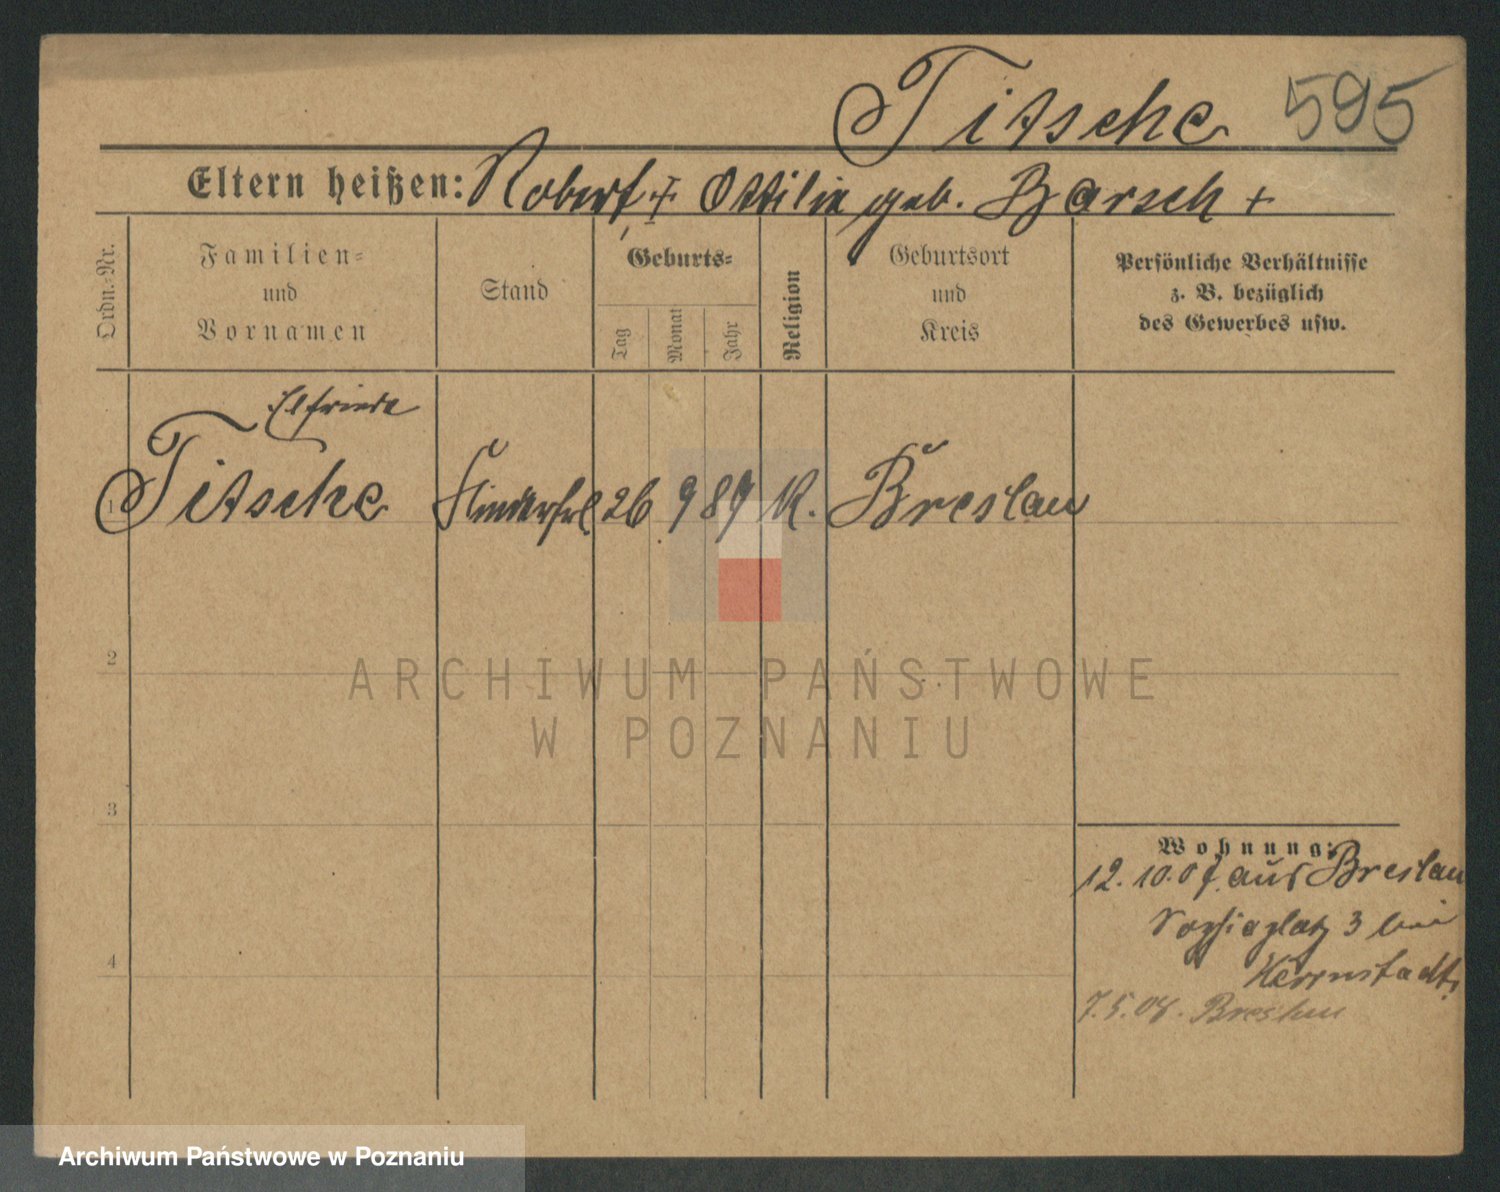 Titsche 595
Eltern heißen: Robert + Ottilie geb. Barsch +
Ordn.-Nr.
Familien-
und
Vornamen
Stand
Geburts-
Tag
Monat
Jahr
Religion
Geburtsort
und
Kreis
Persönliche Verhältnisse
z. B. bezüglich
des Gewerbes usw.
Elfriede
1 Titsche Kinderfrl. 26 9 89 K. Breslau
2
ARCHIWUM PAŃSTWOWE
W POZNANIU
3
Wohnung:
12.10.07. aus Breslau
Sophieplatz 3 bei
Herrnstadt
4
7.5.08. Breslau
Archiwum Państwowe w Poznaniu